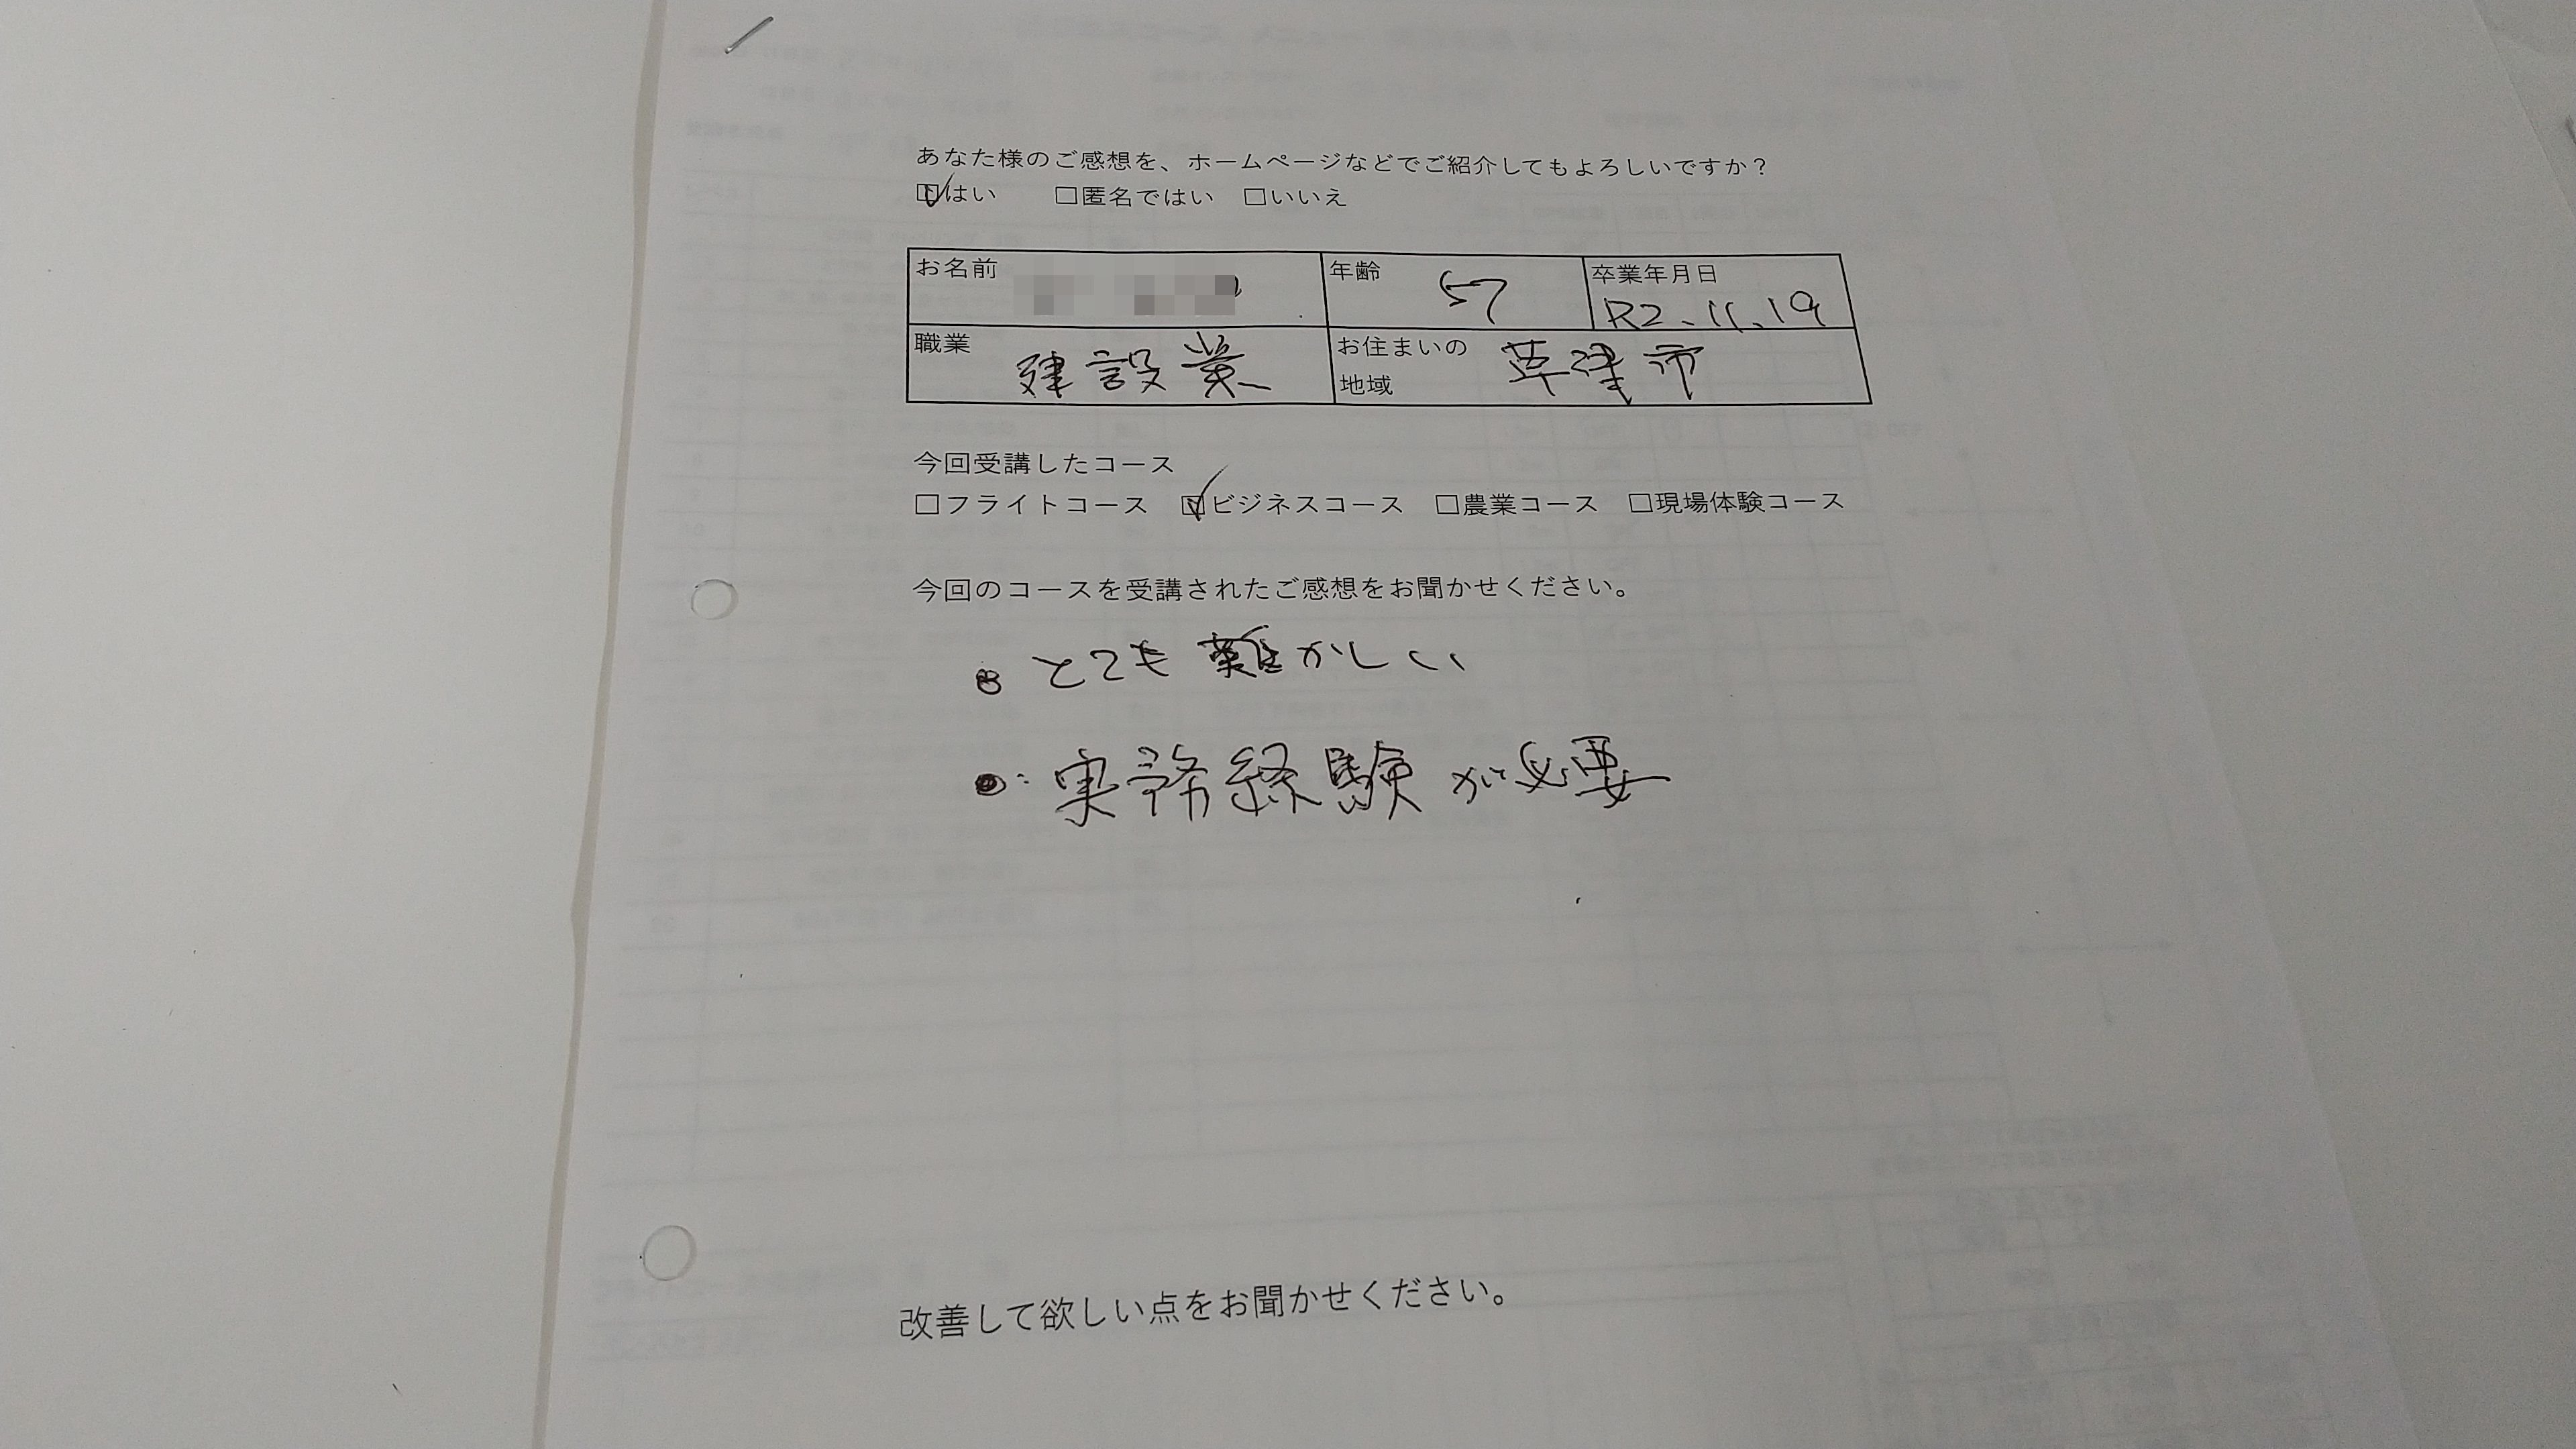 あなた様のご感想を、ホームページなどでご紹介してもよろしいですか？
☑はい　□匿名ではい　□いいえ
お名前
年齢 57
卒業年月日 R2.11.19
職業 建設業
お住まいの地域 草津市
今回受講したコース
□フライトコース　☑ビジネスコース　□農業コース　□現場体験コース
今回のコースを受講されたご感想をお聞かせください。
● とても難かしい
● 実務経験が必要
改善して欲しい点をお聞かせください。